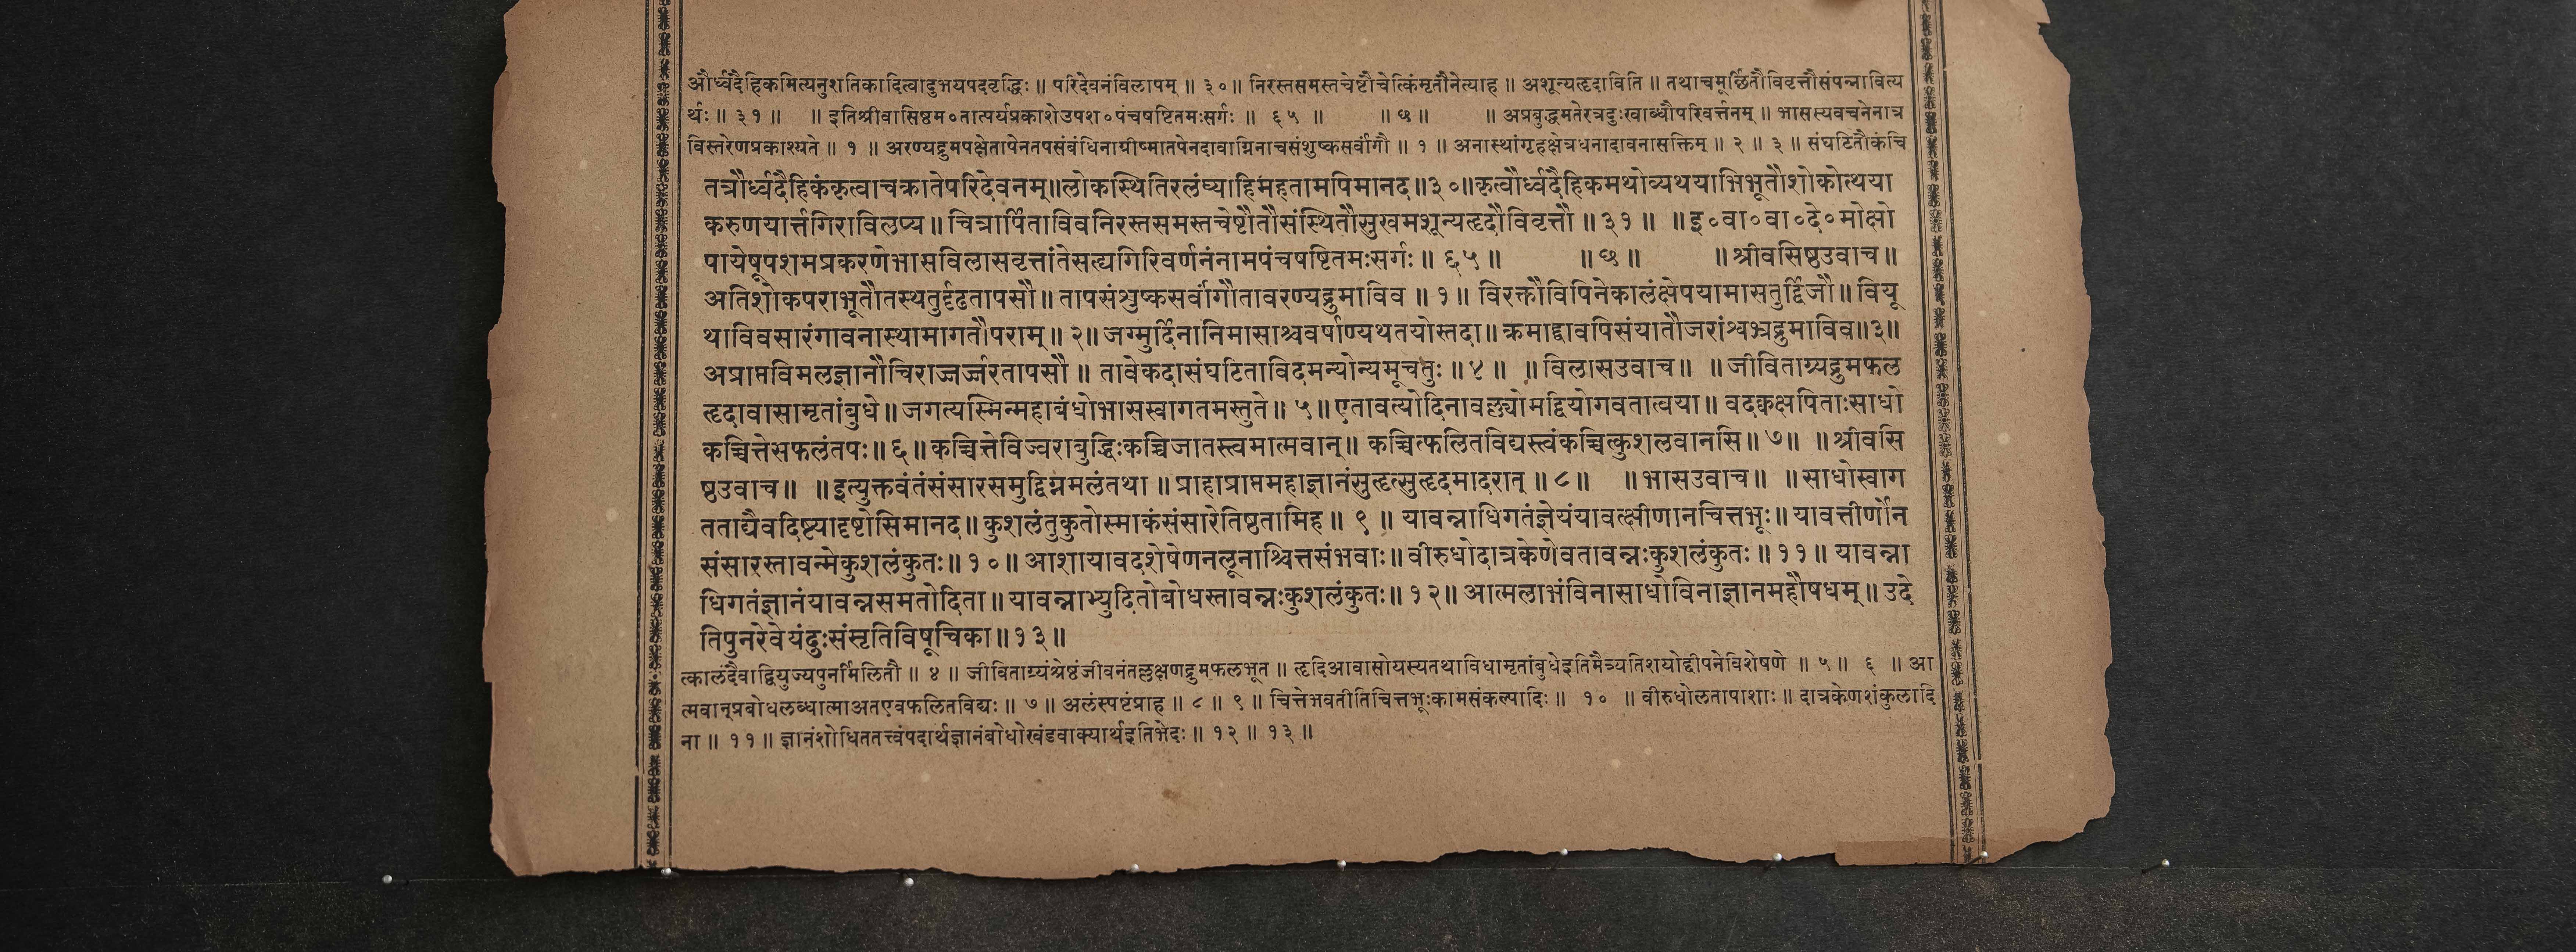 और्ध्वदैहिकमित्यनुशतिकादित्वादुभयपदवृद्धिः ॥ परिदेवनंविलापम् ॥ ३० ॥ निरस्तसमस्तचेष्टौचेत्किंमृतौनेत्याह ॥ अशून्यहृदाविति ॥ तथाचमूर्छितौविवृत्तौसंपन्नावित्य
र्थः ॥ ३१ ॥ ॥ इतिश्रीवासिष्ठम०तात्पर्यप्रकाशेउपश०पंचषष्टितमःसर्गः ॥ ६५ ॥ ॥ ७ ॥ ॥ अप्रबुद्धमतेरत्रदुःखाब्धौपरिवर्त्तनम् ॥ भासस्यवचनेनात्र
विस्तरेणप्रकाश्यते ॥ १ ॥ अरण्यद्रुमपक्षेतापेनतपसंबंधिनाग्रीष्मातपेनदावाग्निनाचसंशुष्कसर्वांगौ ॥ १ ॥ अनास्थांगृहक्षेत्रधनादावनासक्तिम् ॥ २ ॥ ३ ॥ संघटितौकंचि
तत्रौर्ध्वदैहिकंकृत्वाचक्रातेपरिदेवनम्॥लोकस्थितिरलंघ्याहिमहतामपिमानद॥३०॥कृत्वौर्ध्वदैहिकमथोव्यथयाभिभूतौशोकोत्थया
करुणयार्त्तगिराविलप्य॥ चित्रार्पिताविवनिरस्तसमस्तचेष्टौतौसंस्थितौसुखमशून्यहृदौविवृत्तौ ॥ ३१ ॥ ॥ इ०वा०वा०दे०मोक्षो
पायेषूपशमप्रकरणेभासविलासवृत्तांतेसह्यगिरिवर्णनंनामपंचषष्टितमःसर्गः ॥ ६५ ॥ ॥ ७ ॥ ॥ श्रीवसिष्ठउवाच॥
अतिशोकपराभूतौतस्थतुर्दृढतापसौ॥ तापसंशुष्कसर्वांगौतावरण्यद्रुमाविव ॥ १॥ विरक्तौविपिनेकालंक्षेपयामासतुर्द्विजौ॥ वियू
थाविवसारंगावनास्थामागतौपराम्॥ २॥ जग्मुर्दिनानिमासाश्चवर्षाण्यथतयोस्तदा॥ क्रमाद्द्वावपिसंयातौजरांश्वभ्रद्रुमाविव॥३॥
अप्राप्तविमलज्ञानौचिराज्जर्ज्जरतापसौ ॥ तावेकदासंघटिताविदमन्योन्यमूचतुः ॥ ४ ॥ ॥ विलासउवाच॥ ॥ जीविताग्र्यद्रुमफल
हृदावासामृतांबुधे॥ जगत्यस्मिन्महाबंधोभासस्वागतमस्तुते॥ ५॥ एतावत्योदिनावल्ल्योमद्वियोगवतात्वया॥ वदक्वक्षपिताःसाधो
कच्चित्तेसफलंतपः॥ ६॥ कच्चित्तेविज्वराबुद्धिःकच्चिज्जातस्त्वमात्मवान्॥ कच्चित्फलितविद्यस्त्वंकच्चित्कुशलवानसि॥ ७॥ ॥ श्रीवसि
ष्ठउवाच॥ ॥ इत्युक्तवंतंसंसारसमुद्विग्नमलंतथा ॥ प्राहाप्राप्तमहाज्ञानंसुहृत्सुहृदमादरात् ॥ ८॥ ॥ भासउवाच॥ ॥ साधोस्वाग
तताद्यैवदिष्ट्यादृष्टोसिमानद॥ कुशलंतुकुतोस्माकंसंसारेतिष्ठतामिह॥ ९ ॥ यावन्नाधिगतंज्ञेयंयावत्क्षीणानचित्तभूः॥ यावत्तीर्णोन
संसारस्तावन्मेकुशलंकुतः॥ १०॥ आशायावदशेषेणनलूनाश्चित्तसंभवाः॥ वीरुधोदात्रकेणेवतावन्नःकुशलंकुतः ॥ ११॥ यावन्ना
धिगतंज्ञानंयावन्नसमतोदिता॥ यावन्नाभ्युदितोबोधस्तावन्नःकुशलंकुतः॥ १२॥ आत्मलाभंविनासाधोविनाज्ञानमहौषधम्॥ उदे
तिपुनरेवेयंदुःसंसृतिविषूचिका॥१३॥
त्कालंदैवाद्वियुज्यपुनर्मिलितौ ॥ ४ ॥ जीविताग्र्यंश्रेष्ठंजीवनंतल्लक्षणद्रुमफलभूत ॥ हृदिआवासोयस्यतथाविधामृतांबुधेइतिमैत्र्यतिशयोद्दीपनेविशेषणे ॥ ५ ॥ ६ ॥ आ
त्मवान्प्रबोधलब्धात्माअतएवफलितविद्यः ॥ ७ ॥ अलंस्पष्टंप्राह ॥ ८ ॥ ९ ॥ चित्तेभवतीतिचित्तभूःकामसंकल्पादिः ॥ १० ॥ वीरुधोलतापाशाः ॥ दात्रकेणशंकुलादि
ना ॥ ११ ॥ ज्ञानंशोधिततत्त्वंपदार्थज्ञानंबोधोखंडवाक्यार्थइतिभेदः ॥ १२ ॥ १३ ॥